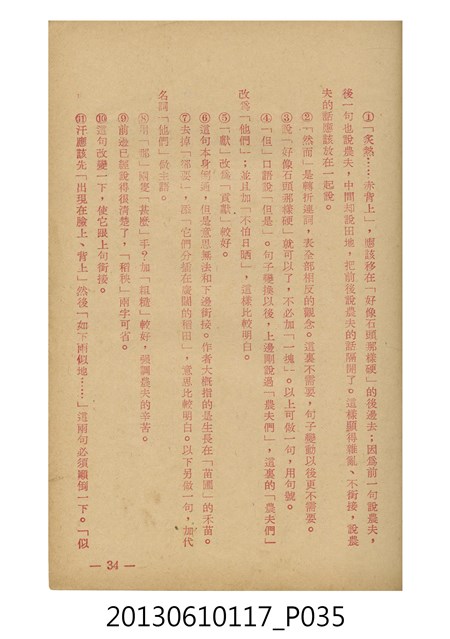 ①「炙熱……赤背上」，應該移在「好像石頭那樣硬」的後邊去；因爲前一句說農夫，
後一句也說農夫，中間却說田地，把前後說農夫的話隔開了。這樣顯得雜亂、不銜接，說農
夫的話應該放在一起說。
②「然而」是轉折連詞，表全部相反的觀念。這裏不需要，句子變動以後更不需要。
③說「好像石頭那樣硬」就可以了，不必加「一塊」。以上可做一句，用句號。
④「但」口語說「但是」。句子變換以後，上邊剛說過「農夫們」，這裏的「農夫們」
改爲「他們」；並且加「不怕日晒」，這樣比較明白。
⑤「獻」改爲「貢獻」較好。
⑥這句本身倒通，但是意思無法和下邊銜接。作者大概指的是生長在「苗圃」的禾苗。
⑦去掉「那要」，說「它們分插在廣闊的稻田」，意思比較明白。以下另做一句，加代
名詞「他們」做主語。
⑧用「那」兩隻「甚麼」手？加「粗糙」較好，強調農夫的辛苦。
⑨前邊已經說得很清楚了，「稻秧」兩字可省。
⑩這句改變一下，使它跟上句銜接。
⑪汗應該先「出現在臉上、背上」然後「如下雨似地……」這兩句必須顚倒一下。「似
— 34 —
20130610117_P035